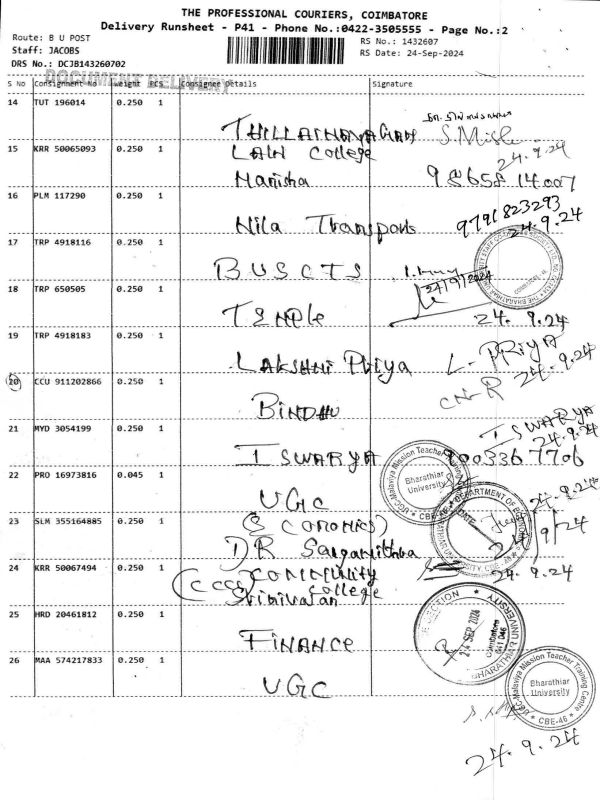 THE PROFESSIONAL COURIERS, COIMBATORE
Delivery Runsheet - P41 - Phone No.:0422-3505555 - Page No.:2
Route: B U POST
RS No.: 1432607
Staff: JACOBS
RS Date: 24-Sep-2024
DRS No.: DCJB143260702
DOCUMENT DELIVERY
S No Consignment No Weight PCS Consignee Details Signature
14 TUT 196014 0.250 1
THILLAINAYAGAM
LAW College
24.9.24
15 KRR 50065093 0.250 1
Manisha 98658 14007
16 PLM 117290 0.250 1
Nila Transports 9791823293
24.9.24
17 TRP 4918116 0.250 1
BUSCTS
24/9/2024
18 TRP 650505 0.250 1
TEMPLE 24.9.24
19 TRP 4918183 0.250 1
LAKSHMI Priya L-PRIYA
24.9.24
20 CCU 911202866 0.250 1
BINDHU
21 MYD 3054199 0.250 1
ISWARYA
24.9.24
ISWARYA 9003367706
22 PRO 16973816 0.045 1
UGC
24.9.24
UGC-Malaviya Mission Teacher Training Centre
Bharathiar
University
CBE-46
23 SLM 355164885 0.250 1
(ECONOMICS)
DR Sangamithra
24/9/24
DEPARTMENT OF
DATE
24 KRR 50067494 0.250 1
COMMUNITY
College
Srinivasan
24.9.24
25 HRD 20461812 0.250 1
FINANCE
24 SEP 2024
Coimbatore
641 046
BHARATHIAR UNIVERSITY
26 MAA 574217833 0.250 1
UGC
UGC-Malaviya Mission Teacher Training Centre
Bharathiar
University
CBE-46
24.9.24